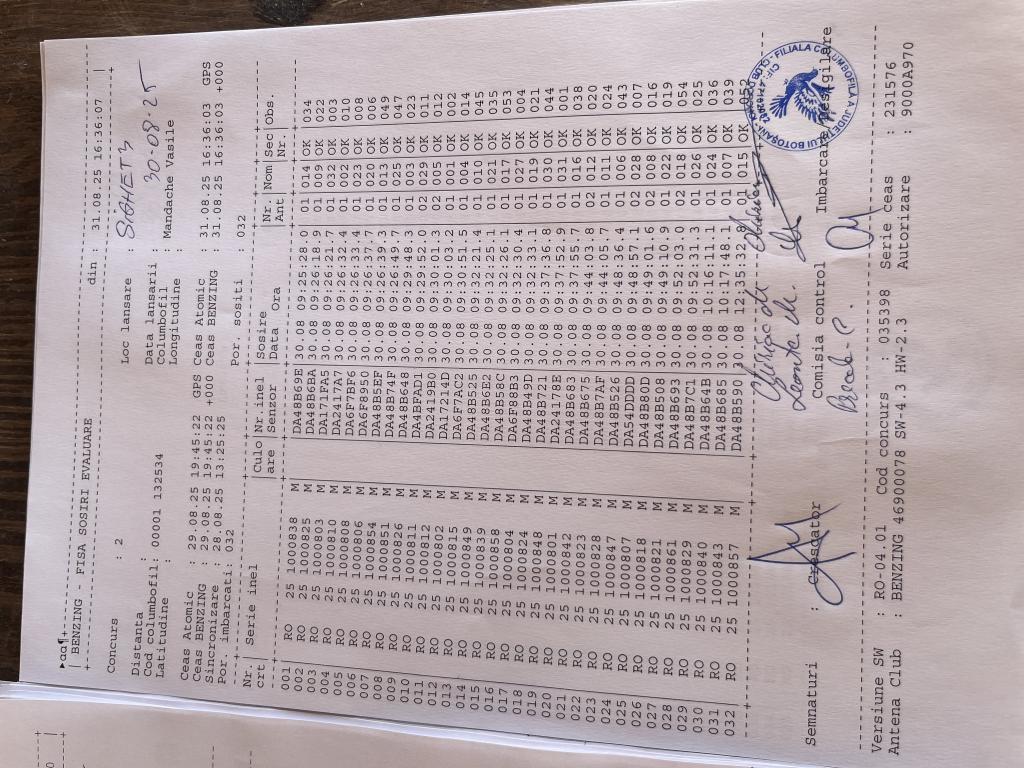 ▸aa¶+
| BENZING - FISA SOSIRI EVALUARE din : 31.08.25 16:36:07 |
Concurs : 2 Loc lansare : SIGHET 3
Distanta : Data lansarii : 30-08-25
Cod columbofil: 00001 132534 Columbofil : Mandache Vasile
Latitudine : Longitudine :
Ceas Atomic : 29.08.25 19:45:22 GPS Ceas Atomic : 31.08.25 16:36:03 GPS
Ceas BENZING : 29.08.25 19:45:22 +000 Ceas BENZING : 31.08.25 16:36:03 +000
Sincronizare : 28.08.25 13:25:22
Por. imbarcati: 032 Por. sositi : 032
Nr. | Serie inel |Culo|Nr.inel |Sosire |Nr.|Nom|Sec|Obs.
crt | |are |Senzor |Data Ora |Ant| |Nr.|
001 | RO 25 1000838 | M |DA48B69E|30.08 09:25:28.0|01 |014|OK |034
002 | RO 25 1000825 | M |DA48B6BA|30.08 09:26:18.9|01 |009|OK |022
003 | RO 25 1000803 | M |DA171FA5|30.08 09:26:21.7|01 |032|OK |003
004 | RO 25 1000810 | M |DA2417A7|30.08 09:26:32.4|01 |002|OK |010
005 | RO 25 1000808 | M |DA6F7BF6|30.08 09:26:33.4|01 |023|OK |008
006 | RO 25 1000806 | M |DA6F8956|30.08 09:26:37.7|01 |020|OK |006
007 | RO 25 1000854 | M |DA48B5EF|30.08 09:26:39.3|01 |013|OK |049
008 | RO 25 1000851 | M |DA48B74F|30.08 09:26:49.7|01 |025|OK |047
009 | RO 25 1000826 | M |DA48B648|30.08 09:29:48.3|01 |003|OK |023
010 | RO 25 1000811 | M |DA4BFAD1|30.08 09:29:52.0|02 |029|OK |011
011 | RO 25 1000812 | M |DA2419B0|30.08 09:30:01.3|02 |005|OK |012
012 | RO 25 1000802 | M |DA17214D|30.08 09:30:03.2|01 |001|OK |002
013 | RO 25 1000815 | M |DA6F7AC2|30.08 09:30:51.5|01 |004|OK |014
014 | RO 25 1000849 | M |DA48B525|30.08 |01 |010|OK |045
015 | RO 25 1000839 | M |DA48B6E2|30.08 |01 |021|OK |035
016 | RO 25 1000858 | M |DA48B58C|30.08 |01 |017|OK |053
017 | RO 25 1000804 | M |DA6F88B3|30.08 |01 |027|OK |004
018 | RO 25 1000824 | M |DA48B49D|30.08 |01 |019|OK |021
019 | RO 25 1000848 | M |DA48B721|30.08 |01 |030|OK |044
020 | RO 25 1000801 | M |DA24178E|30.08 09:37:52.9|01 |031|OK |001
021 | RO 25 1000842 | M |DA48B683|30.08 09:37:55.7|01 |016|OK |038
022 | RO 25 1000823 | M |DA48B675|30.08 09:44:03.8|02 |012|OK |020
023 | RO 25 1000828 | M |DA48B7AF|30.08 09:44:05.7|01 |011|OK |024
024 | RO 25 1000847 | M |DA48B526|30.08 09:48:36.4|01 |006|OK |043
025 | RO 25 1000807 | M |DA54DDDD|30.08 09:48:57.1|02 |028|OK |007
026 | RO 25 1000818 | M |DA48B80D|30.08 09:49:01.6|02 |008|OK |016
027 | RO 25 1000821 | M |DA48B508|30.08 09:49:10.9|01 |022|OK |019
028 | RO 25 1000861 | M |DA48B693|30.08 09:52:03.0|02 |018|OK |054
029 | RO 25 1000829 | M |DA48B7C1|30.08 09:52:31.3|01 |026|OK |025
030 | RO 25 1000840 | M |DA48B64B|30.08 10:16:11.1|01 |024|OK |036
031 | RO 25 1000843 | M |DA48B685|30.08 10:17:48.1|01 |007|OK |039
032 | RO 25 1000857 | M |DA48B590|30.08 12:35:32.8|01 |015|OK |052
Semnaturi : Crescator Comisia control Imbarcare Desigilare
Versiune SW : RO-04.01 Cod concurs : 035398 Serie ceas : 231576
Antena Club : BENZING 46900078 SW-4.3 HW-2.3 Autorizare : 9000A970